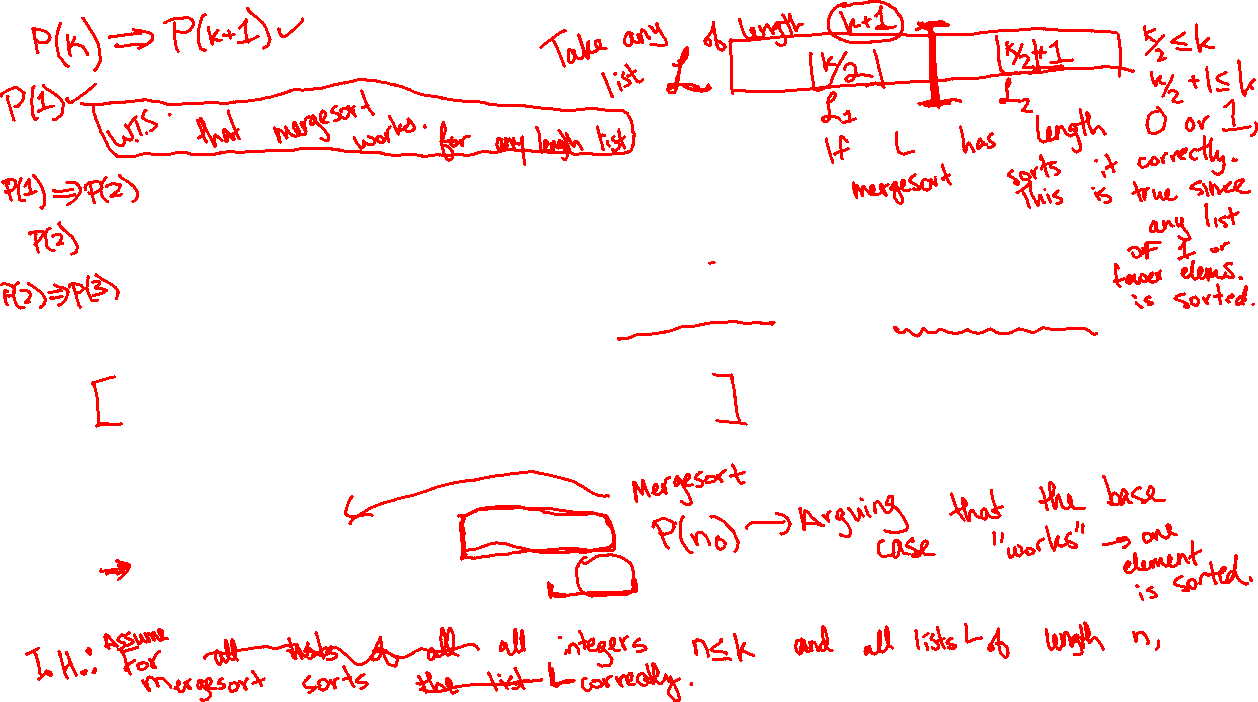 P(k) ⟹ P(k+1) ✓
P(1) ✓
W.T.S. that mergesort
works. for any length list
P(1) ⟹ P(2)
P(2)
P(2) ⟹ P(3)
Take any
list L of length k+1
k/2
k/2+1
L₁
L₂
k/2 ≤ k
k/2 + 1 ≤ k
If L has length 0 or 1,
mergesort sorts it correctly.
This is true since
any list
of 1 or
fewer elems.
is sorted.
[ ]
Mergesort
P(n₀) → Arguing that the base
case "works" → one
element
is sorted.
I.H.: Assume
For all lists of all all integers n≤k and all lists L of length n,
mergesort sorts the list L correctly.